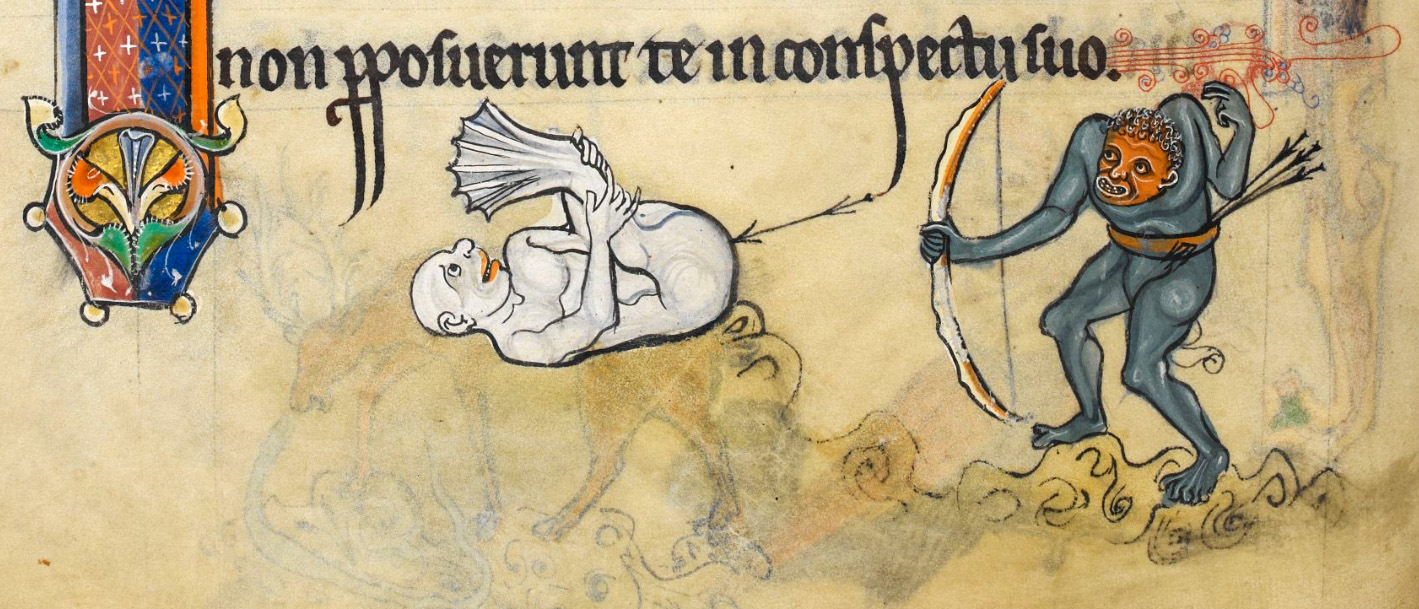 non ꝓposuerunt te in conspectu suo.